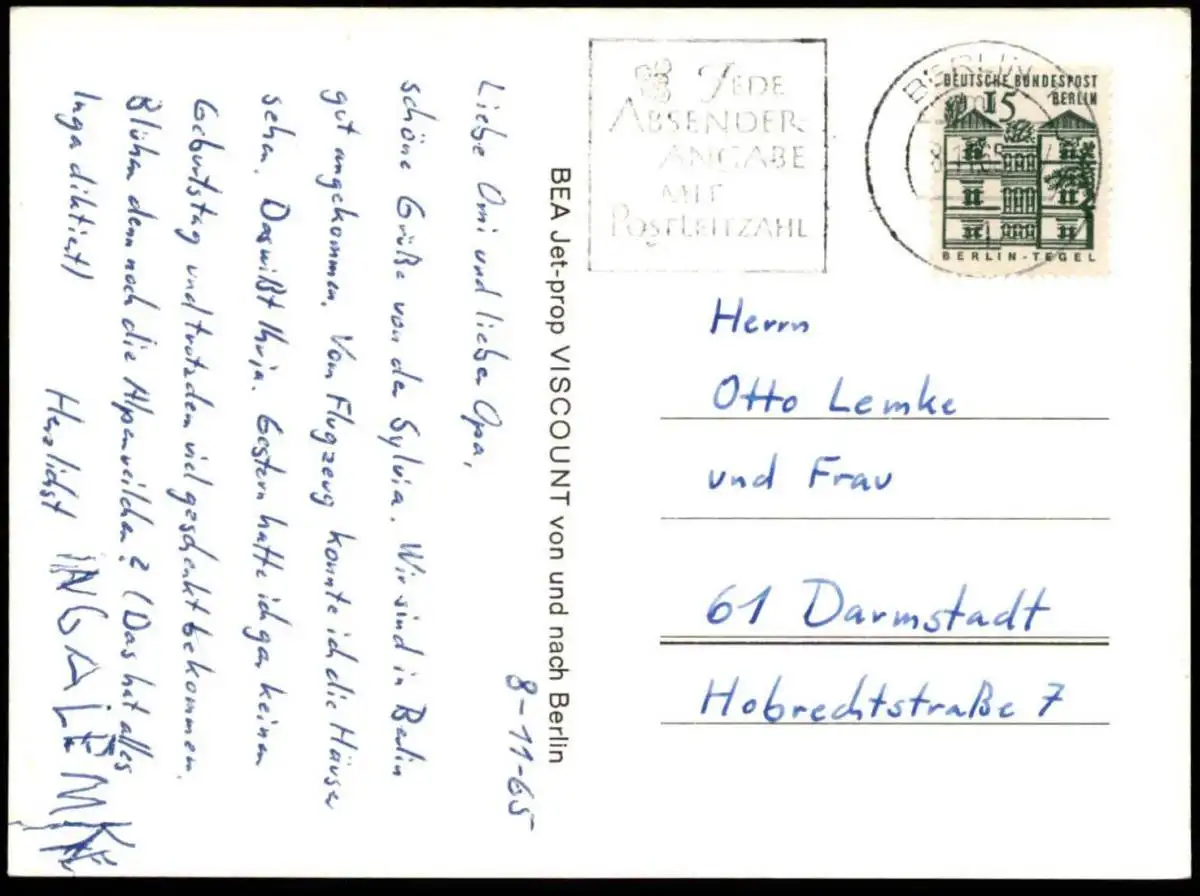 8-11-65
Liebe Omi und lieber Opa,
schöne Grüße von der Sylvia. Wir sind in Berlin
gut angekommen. Vom Flugzeug konnte ich die Häuser
sehen. Das wißt Ihr ja. Gestern hatte ich gar keinen
Geburtstag und trotzdem viel geschenkt bekommen.
Blühen denn noch die Alpenveilchen? (Das hat alles
Inga diktiert)
Herzlichst INGA LEMKE
BEA Jet-prop VISCOUNT von und nach Berlin
JEDE
ABSENDER-
ANGABE
MIT
POSTLEITZAHL
BERLIN
8.11.65
DEUTSCHE BUNDESPOST
BERLIN
15
BERLIN-TEGEL
Herrn
Otto Lemke
und Frau
61 Darmstadt
Hobrechtstraße 7